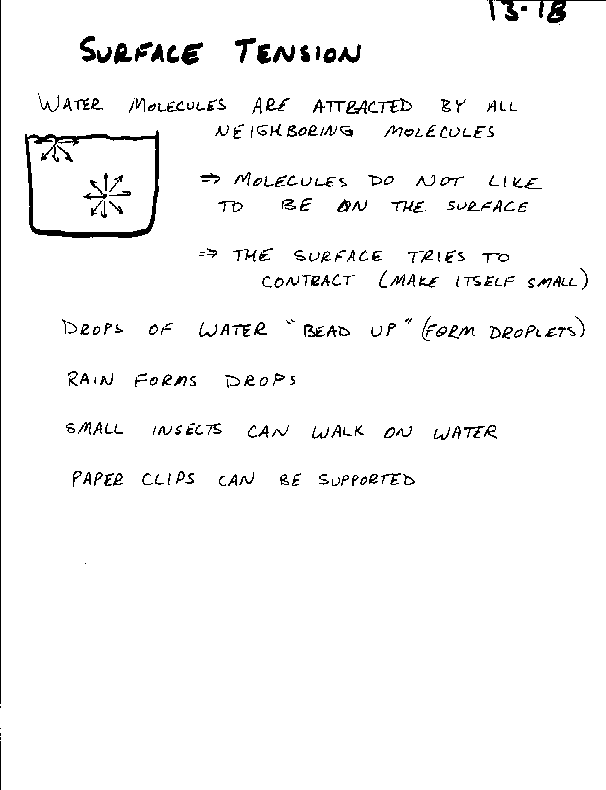 13-18
SURFACE TENSION
WATER MOLECULES ARE ATTRACTED BY ALL
NEIGHBORING MOLECULES
⇒ MOLECULES DO NOT LIKE
TO BE ON THE SURFACE
⇒ THE SURFACE TRIES TO
CONTRACT (MAKE ITSELF SMALL)
DROPS OF WATER "BEAD UP" (FORM DROPLETS)
RAIN FORMS DROPS
SMALL INSECTS CAN WALK ON WATER
PAPER CLIPS CAN BE SUPPORTED